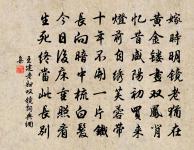 嫁時明鏡老猶在
黃金鏤畫雙鳳背
憶昔咸陽初買來
燈前自繡芙蓉帶
十年不開一片鐵
長向暗中梳白髮
今日後床重照看
生死終當此長別
王建老婦嘆鏡詞典網
集